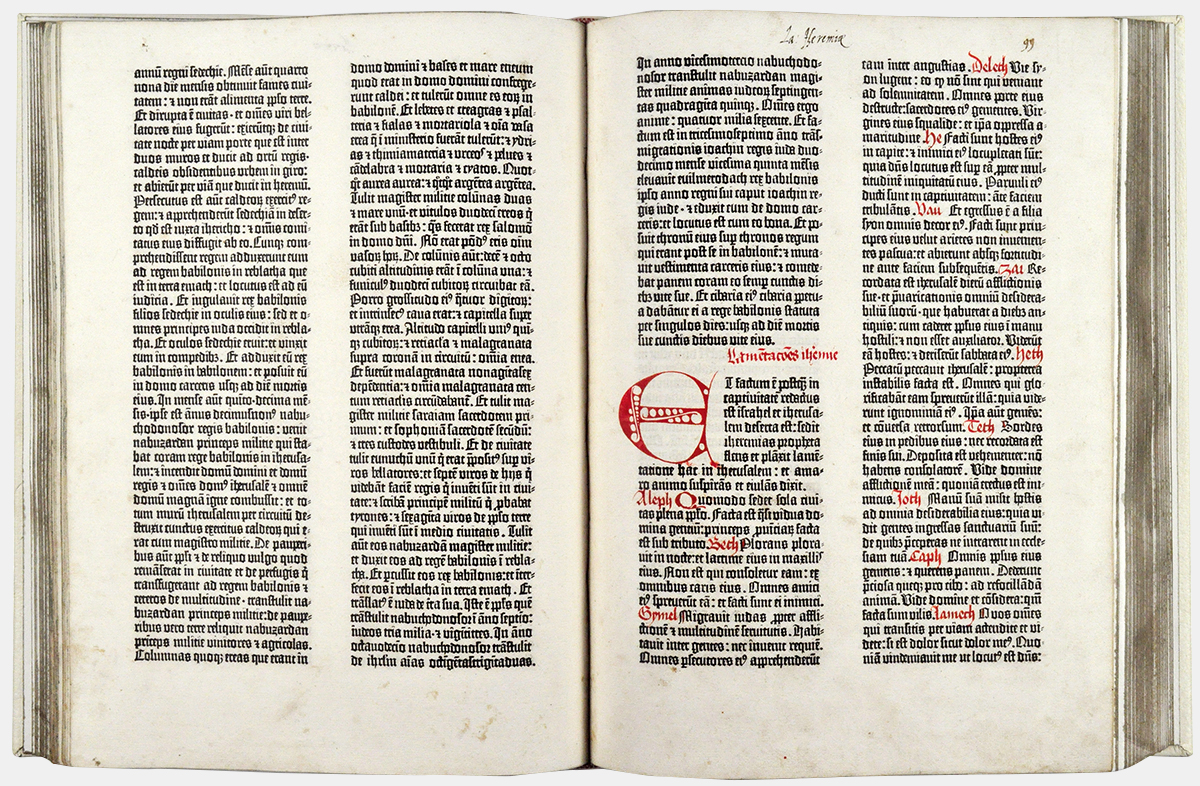 annū regni sedechie. Mēse aūt quarto
nona die mensis obtinuit fames civi-
tatem: ⁊ non erāt alimenta pp̄lo terre.
Et dirupta ē civitas · et oīnes viri bel-
latores eius fugerūt: exierūtq; de civi-
tate nocte per viam porte que est inter
duos muros et ducit ad ortū regis·
caldeis obsidentibus urbem in giro:
et abierūt per viā que ducit in heremū.
Persecutus est aūt caldeoꝝ exercit⁹ re-
gem: ⁊ apprehenderūt sedechiā in deser-
to qd̄ est iuxta ihericho: ⁊ oīnis comi-
tatus eius diffugit ab eo. Cunqꝫ com-
prehendissent regem adduxerunt eum
ad regem babilonis in reblatha que
est in terra emath: et locutus est ad eū
iudicia. Et iugulavit rex babilonis
filios sedechie in oculis eius: sed et o-
mnes principes iuda occidit in rebla-
tha. Et oculos sedechie eruit: et vinxit
eum in compedibꝫ. Et adduxit eū rex
babilonis in babilonem: et posuit eū
in domo carceris usqꝫ ad diē mortis
eius. In mense aūt quīto · decima mē-
sis · ipse est ānus decimusnon⁹ nabu-
chodonosor regis babilonis: venit
nabuzardan princeps militie qui sta-
bat coram rege babilonis in iherusa-
lem: ⁊ incendit domū domini et domū
regis ⁊ oīnes dom⁹ iherusalē ⁊ omnē
domū magnā igne combussit: et to-
tum murū iherusalem per circuitū de-
struxit cunctus exercitus caldeoꝝ qui e-
rat cum magistro militie. De pauperi-
bus aūt ppl̄i ⁊ de reliquo vulgo quod
remāserat in civitate et de perfugis q̄
transfugerant ad regem babilonis ⁊
ceteros de multitudine · transtulit na-
buzardan princeps militie: de paupe-
ribus vero terre reliquit nabuzardan
prīceps militie vinitores ⁊ agricolas.
Columnas quoqꝫ ereas que erant in
domo domini ⁊ bases et mare eneum
quod erat in domo domini confrege-
runt caldei: et tulerūt omne es eoꝝ in
babilonē. Et lebetes et creagras ⁊ psal-
teria ⁊ fialas ⁊ mortariola ⁊ oīa vasa
erea q̄ ī ministerio fuerāt tulerūt: ⁊ ydri-
as ⁊ thimiamateria ⁊ urceos ⁊ pelves ⁊
cādelabra ⁊ mortaria ⁊ cyatos. Quot-
q̄t aurea aurea: ⁊ q̄tq̄t argētea argētea.
Tulit magister militie colūnas duas
⁊ mare unū · et vitulos duodecī ereos q̄
erāt sub basibꝫ: q̄s fecerat rex salomō
in domo dn̄i. Nō erat pōd⁹ eris oīm
vasoꝝ hoꝝ. De colūnis aūt: decē ⁊ octo
cubiti altitudinis erāt ī colūna una: ⁊
funicul⁹ duodecī cubitoꝝ circuibat eā.
Porro grossitudo ei⁹ q̄tuor digitoꝝ:
et intrīsec⁹ cava erat: ⁊ capitella super
utrāqꝫ erea. Altitudo capitelli uni⁹ quī-
qꝫ cubitoꝝ: ⁊ retiacla ⁊ malagranata
supra coronā in circuitu: omīa erea.
Et fuerūt malagranata nonagītasex
depēdentia: ⁊ omīa malagranata cen-
tum retiaclis circūdabanꝉ. Et tulit ma-
gister militie saraiam sacerdotem pri-
mum: et sophoniā sacerdotē secūdū:
⁊ tres custodes vestibuli. Et de civitate
tulit eunuchū unū q̄ erat ppōsit⁹ sup viros
ros bellatores: et septē viros de hijs q̄
videbāt faciē regis q̄ inventi sūt in civi-
tate: ⁊ scribā principē militū q̄ probabat
tyrones: ⁊ sexagīta viros de ppl̄o terre
qui invēti sūt ī medio civitatis. Tulit
aūt eos nabuzardā magister militie:
et duxit eos ad regē babilonis ī rebla-
tha. Et percussit eos rex babilonis: et īter-
fecit eos ī reblatha in terra emath. Et
trāslat⁹ ē iuda de terra sua. Iste ē ppl̄us quē
trāstulit nabuchodonosor: ī āno septīo:
iudeos tria milia · ⁊ vigītitres. In āno
octavodecīo nabuchodonosor trāstulit
de ihrl̄m aīas octīgētastrigītaduas.
La: Ieremiæ
99
In anno vicesimotercio nabuchodo-
nosor transtulit nabuzardan magi-
ster militie animas iudeoꝝ septingen-
tas quadraginta quinqꝫ. Oīnes ergo
anime: quatuor milia sexcente. Et fa-
ctum est in tricesimoseptimo āno trās-
migrationis ioachin regis iuda duo-
decimo mense vicesima quinta mēsis
elevavit evilmerodach rex babilonis
ipso anno regni sui caput ioachin re-
gis iude · ⁊ eduxit eum de domo car-
ceris: et locutus est cum eo bona. Et po-
suit thronū eius sup thronos regum
qui erant post se in babilonē: ⁊ muta-
vit vestimenta carceris eius: ⁊ comede-
bat panem coram eo semper cunctis di-
ebꝫ vite sue. Et cibaria ei⁹ cibaria ppetu-
a dabātur ei a rege babilonis statuta
per singulos dies: usqꝫ ad diē mortis
sue cunctis diebus vite eius.
Lamētacōes ihr̄emie
Et factum ē postqꝫ in
captivitatē redactus
est israhel et iherusa-
lem deserta est: sedit
iheremias propheta
flens et plāxit lamē-
tatione hāc in iherusalem: et ama-
ro animo suspirās et eiulās dixit.
Aleph Quomodo sedet sola civi-
tas plena pplo. Facta est q̄si vidua do-
mina gentiū: princeps puīciaꝝ facta
est sub tributo. Beth Plorans plora-
vit in nocte: et lacrime eius in maxillis
eius. Non est qui consoletur eam: ex
omnibus caris eius. Omnes amici
ei⁹ spreverūt eā: et facti sunt ei inimici.
Gymel Migravit iudas ꝓpter affli-
ctionē ⁊ multitudinē servitutis. Habi-
tavit inter gentes: nec invenit requiē.
Omnes ꝑsecutores ei⁹ apprehenderūt
eam inter angustias. Deleth Vie sy-
on lugent: eo ꝙ nō sunt qui veniant
ad solemnitatem. Omnes porte eius
destructe: sacerdotes ei⁹ gementes. Vir-
gines eius squalide: et ip̄a oppressa a-
maritudine. He Facti sunt hostes ei⁹
in capite: ⁊ inimici ei⁹ locupletati sūt:
quia dn̄s locutus est sup eā ꝓpter mul-
titudinē iniquitatū eius. Parvuli ei⁹
ducti sunt in captivitatem: āte faciem
tribulātis. Vau Et egressus ē a filia
syon omnis decor ei⁹. Facti sunt prin-
cipes eius velut arietes non invenien-
tes pascua: et abierunt absqꝫ fortitudi-
ne ante faciem subsequētis. Zai Re-
cordata est iherusalē dierū afflictionis
sue · et p̄varicationis omniū desidera-
biliū suoꝝ · que habuerat a diebꝫ an-
tiquis: cum caderet ppl̄us eius ī manu
hostili: ⁊ non esset auxiliator. Viderūt
eā hostes: ⁊ deriserūt sabbata ei⁹. Heth
Peccatū peccavit iherusalē: propterea
instabilis facta est. Omnes qui glo-
rificabāt eam spreverūt illā: quia vide-
runt ignominiā ei⁹. Ip̄a aūt gemēs:
et cōversa retrorsum. Teth Sordes
eius in pedibus eius: nec recordata est
finis sui. Deposita est vehementer: nō
habens consolatorē. Vide domine
afflictionē meā: quoniā erectus est ini-
micus. Joth Manū suā misit hostis
ad omnia desiderabilia eius: quia vi-
dit gentes ingressas sanctuariū suū:
de quibꝫ p̄ceperas ne intrarent in eccle-
siam tuā. Caph Omnis ppl̄us eius
gemens: ⁊ querens panem. Dederunt
preciosa queqꝫ pro cibo: ad refocillādā
animā. Vide domine et cōsidera: qm̄
facta sum vilis. Lamech O vos oīnes
qui transitis per viam attendite et vi-
dete: si est dolor sicut dolor me⁹. Quo-
niā vindemiavit me ut locut⁹ est dn̄s: